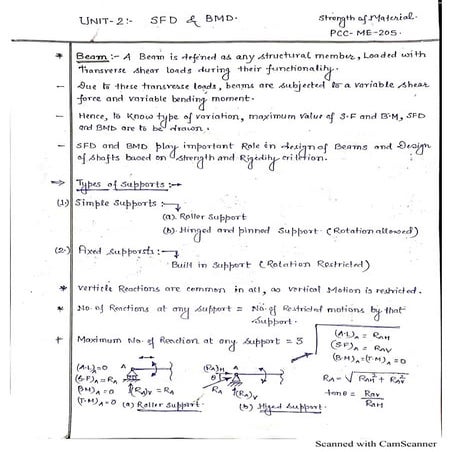 UNIT-2:- SFD & BMD.
Strength of Material.
PCC-ME-205.
* Beam:- A Beam is defined as any structural member, Loaded with
Transverse shear loads during their functionality.
- Due to these transverse loads, beams are subjected to a variable shear
force and variable bending moment.
- Hence, to know type of variation, maximum value of S.F and B.M, SFD
and BMD are to be drawn.
- SFD and BMD play important Role in design of Beams and Design
of Shafts based on strength and Rigidity
⇒ Types of supports:-
(1) Simple Supports:-
(a) Roller Support
(b) Hinged and pinned Support (Rotation allowed)
(2) Fixed Supports:-
Built in Support (Rotation Restricted)
* Verticle Reactions are common in all, as vertical Motion is restricted.
* No. of Reactions at any support = No. of Restricted motions by that
Support.
* Maximum No. of Reaction at any support = 3
(A.L)A = RAH
(S.F)A = RAV
(B.M)A=(T.M)A=0
(A.L)A=0
(S.F)A=RA
(B.M)A=0
(T.M)A=0
A
(RA)V=RA
(a) Roller Support.
(RA)H
A
θ
RA
(RA)V
(b) Higed Support.
RA = √RAH² + RAV²
tanθ = RAV/RAH
Scanned with CamScanner